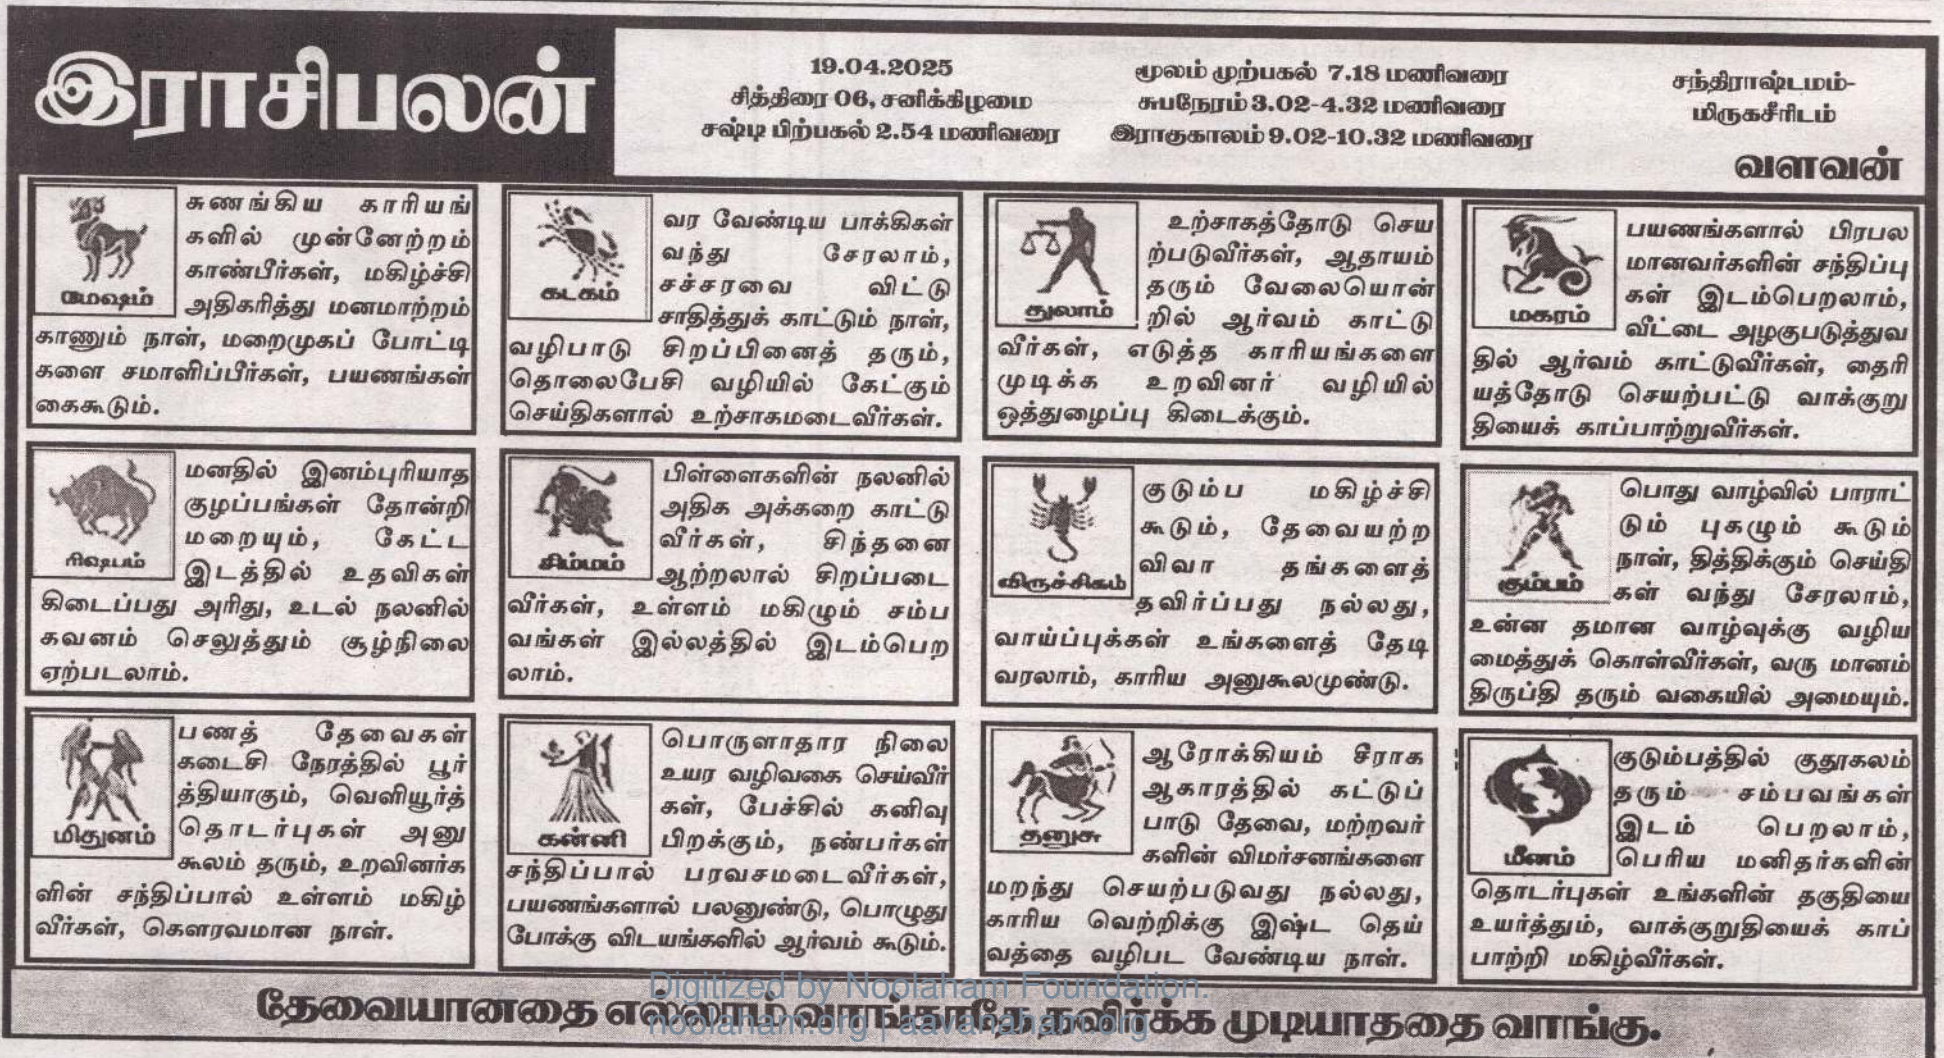 இராசிபலன்
19.04.2025
சித்திரை 06, சனிக்கிழமை
சஷ்டி பிற்பகல் 2.54 மணிவரை
மூலம் முற்பகல் 7.18 மணிவரை
சுபநேரம் 3.02-4.32 மணிவரை
இராகுகாலம் 9.02-10.32 மணிவரை
சந்திராஷ்டமம்-
மிருகசீரிடம்
வளவன்
மேஷம்
சுணங்கிய காரியங்
களில் முன்னேற்றம்
காண்பீர்கள், மகிழ்ச்சி
அதிகரித்து மனமாற்றம்
காணும் நாள், மறைமுகப் போட்டி
களை சமாளிப்பீர்கள், பயணங்கள்
கைகூடும்.
ரிஷபம்
மனதில் இனம்புரியாத
குழப்பங்கள் தோன்றி
மறையும், கேட்ட
இடத்தில் உதவிகள்
கிடைப்பது அரிது, உடல் நலனில்
கவனம் செலுத்தும் சூழ்நிலை
ஏற்படலாம்.
மிதுனம்
பணத் தேவைகள்
கடைசி நேரத்தில் பூர்
த்தியாகும், வெளியூர்த்
தொடர்புகள் அனு
கூலம் தரும், உறவினர்க
ளின் சந்திப்பால் உள்ளம் மகிழ்
வீர்கள், கௌரவமான நாள்.
கடகம்
வர வேண்டிய பாக்கிகள்
வந்து சேரலாம்,
சச்சரவை விட்டு
சாதித்துக் காட்டும் நாள்,
வழிபாடு சிறப்பினைத் தரும்,
தொலைபேசி வழியில் கேட்கும்
செய்திகளால் உற்சாகமடைவீர்கள்.
சிம்மம்
பிள்ளைகளின் நலனில்
அதிக அக்கறை காட்டு
வீர்கள், சிந்தனை
ஆற்றலால் சிறப்படை
வீர்கள், உள்ளம் மகிழும் சம்ப
வங்கள் இல்லத்தில் இடம்பெற
லாம்.
கன்னி
பொருளாதார நிலை
உயர வழிவகை செய்வீர்
கள், பேச்சில் கனிவு
பிறக்கும், நண்பர்கள்
சந்திப்பால் பரவசமடைவீர்கள்,
பயணங்களால் பலனுண்டு, பொழுது
போக்கு விடயங்களில் ஆர்வம் கூடும்.
துலாம்
உற்சாகத்தோடு செய
ற்படுவீர்கள், ஆதாயம்
தரும் வேலையொன்
றில் ஆர்வம் காட்டு
வீர்கள், எடுத்த காரியங்களை
முடிக்க உறவினர் வழியில்
ஒத்துழைப்பு கிடைக்கும்.
விருச்சிகம்
குடும்ப மகிழ்ச்சி
கூடும், தேவையற்ற
விவா தங்களைத்
தவிர்ப்பது நல்லது,
வாய்ப்புக்கள் உங்களைத் தேடி
வரலாம், காரிய அனுகூலமுண்டு.
தனுசு
ஆரோக்கியம் சீராக
ஆகாரத்தில் கட்டுப்
பாடு தேவை, மற்றவர்
களின் விமர்சனங்களை
மறந்து செயற்படுவது நல்லது,
காரிய வெற்றிக்கு இஷ்ட தெய்
வத்தை வழிபட வேண்டிய நாள்.
மகரம்
பயணங்களால் பிரபல
மானவர்களின் சந்திப்பு
கள் இடம்பெறலாம்,
வீட்டை அழகுபடுத்துவ
தில் ஆர்வம் காட்டுவீர்கள், தைரி
யத்தோடு செயற்பட்டு வாக்குறு
தியைக் காப்பாற்றுவீர்கள்.
கும்பம்
பொது வாழ்வில் பாராட்
டும் புகழும் கூடும்
நாள், தித்திக்கும் செய்தி
கள் வந்து சேரலாம்,
உன்ன தமான வாழ்வுக்கு வழிய
மைத்துக் கொள்வீர்கள், வரு மானம்
திருப்தி தரும் வகையில் அமையும்.
மீனம்
குடும்பத்தில் குதூகலம்
தரும் சம்பவங்கள்
இடம் பெறலாம்,
பெரிய மனிதர்களின்
தொடர்புகள் உங்களின் தகுதியை
உயர்த்தும், வாக்குறுதியைக் காப்
பாற்றி மகிழ்வீர்கள்.
தேவையானதை எல்லாம் வாங்காதே தவிர்க்க முடியாததை வாங்கு.
Digitized by Noolaham Foundation.
noolaham.org | aavanaham.org